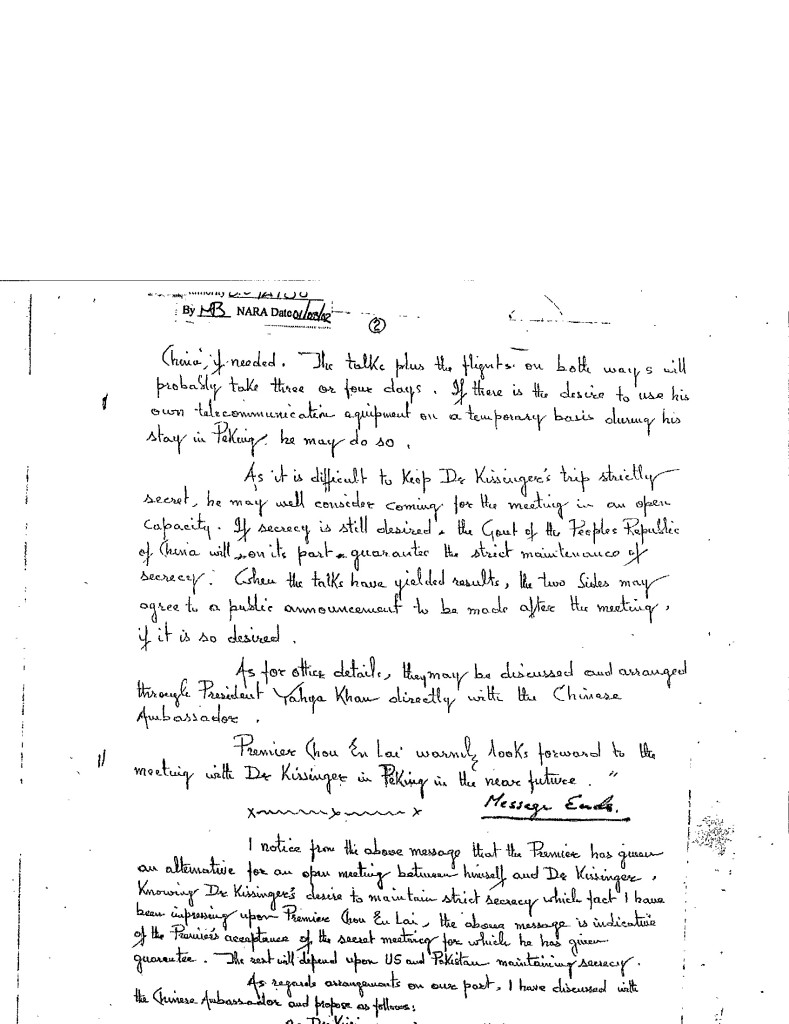 By MB NARA Date 01/03/02
②
China, if needed. The talks plus the flights on both ways will
probably take three or four days. If there is the desire to use his
own telecommunication equipment on a temporary basis during his
stay in Peking he may do so.
As it is difficult to keep Dr Kissinger's trip strictly
secret, he may well consider coming for the meeting in an open
capacity. If secrecy is still desired, the Govt of the Peoples Republic
of China will, on its part, guarantee the strict maintenance of
secrecy. When the talks have yielded results, the two Sides may
agree to a public announcement to be made after the meeting,
if it is so desired.
As for other details, they may be discussed and arranged
through President Yahya Khan directly with the Chinese
Ambassador.
Premier Chou En Lai warmly looks forward to the
meeting with Dr Kissinger in Peking in the near future."
Message Ends.
I notice from the above message that the Premier has given
an alternative for an open meeting between himself and Dr Kissinger.
Knowing Dr Kissinger's desire to maintain strict secrecy which fact I have
been impressing upon Premier Chou En Lai, the above message is indicative
of the Premier's acceptance of the secret meeting for which he has given
guarantee. The rest will depend upon US and Pakistan maintaining secrecy.
As regards arrangements on our part, I have discussed with
the Chinese Ambassador and propose as follows: